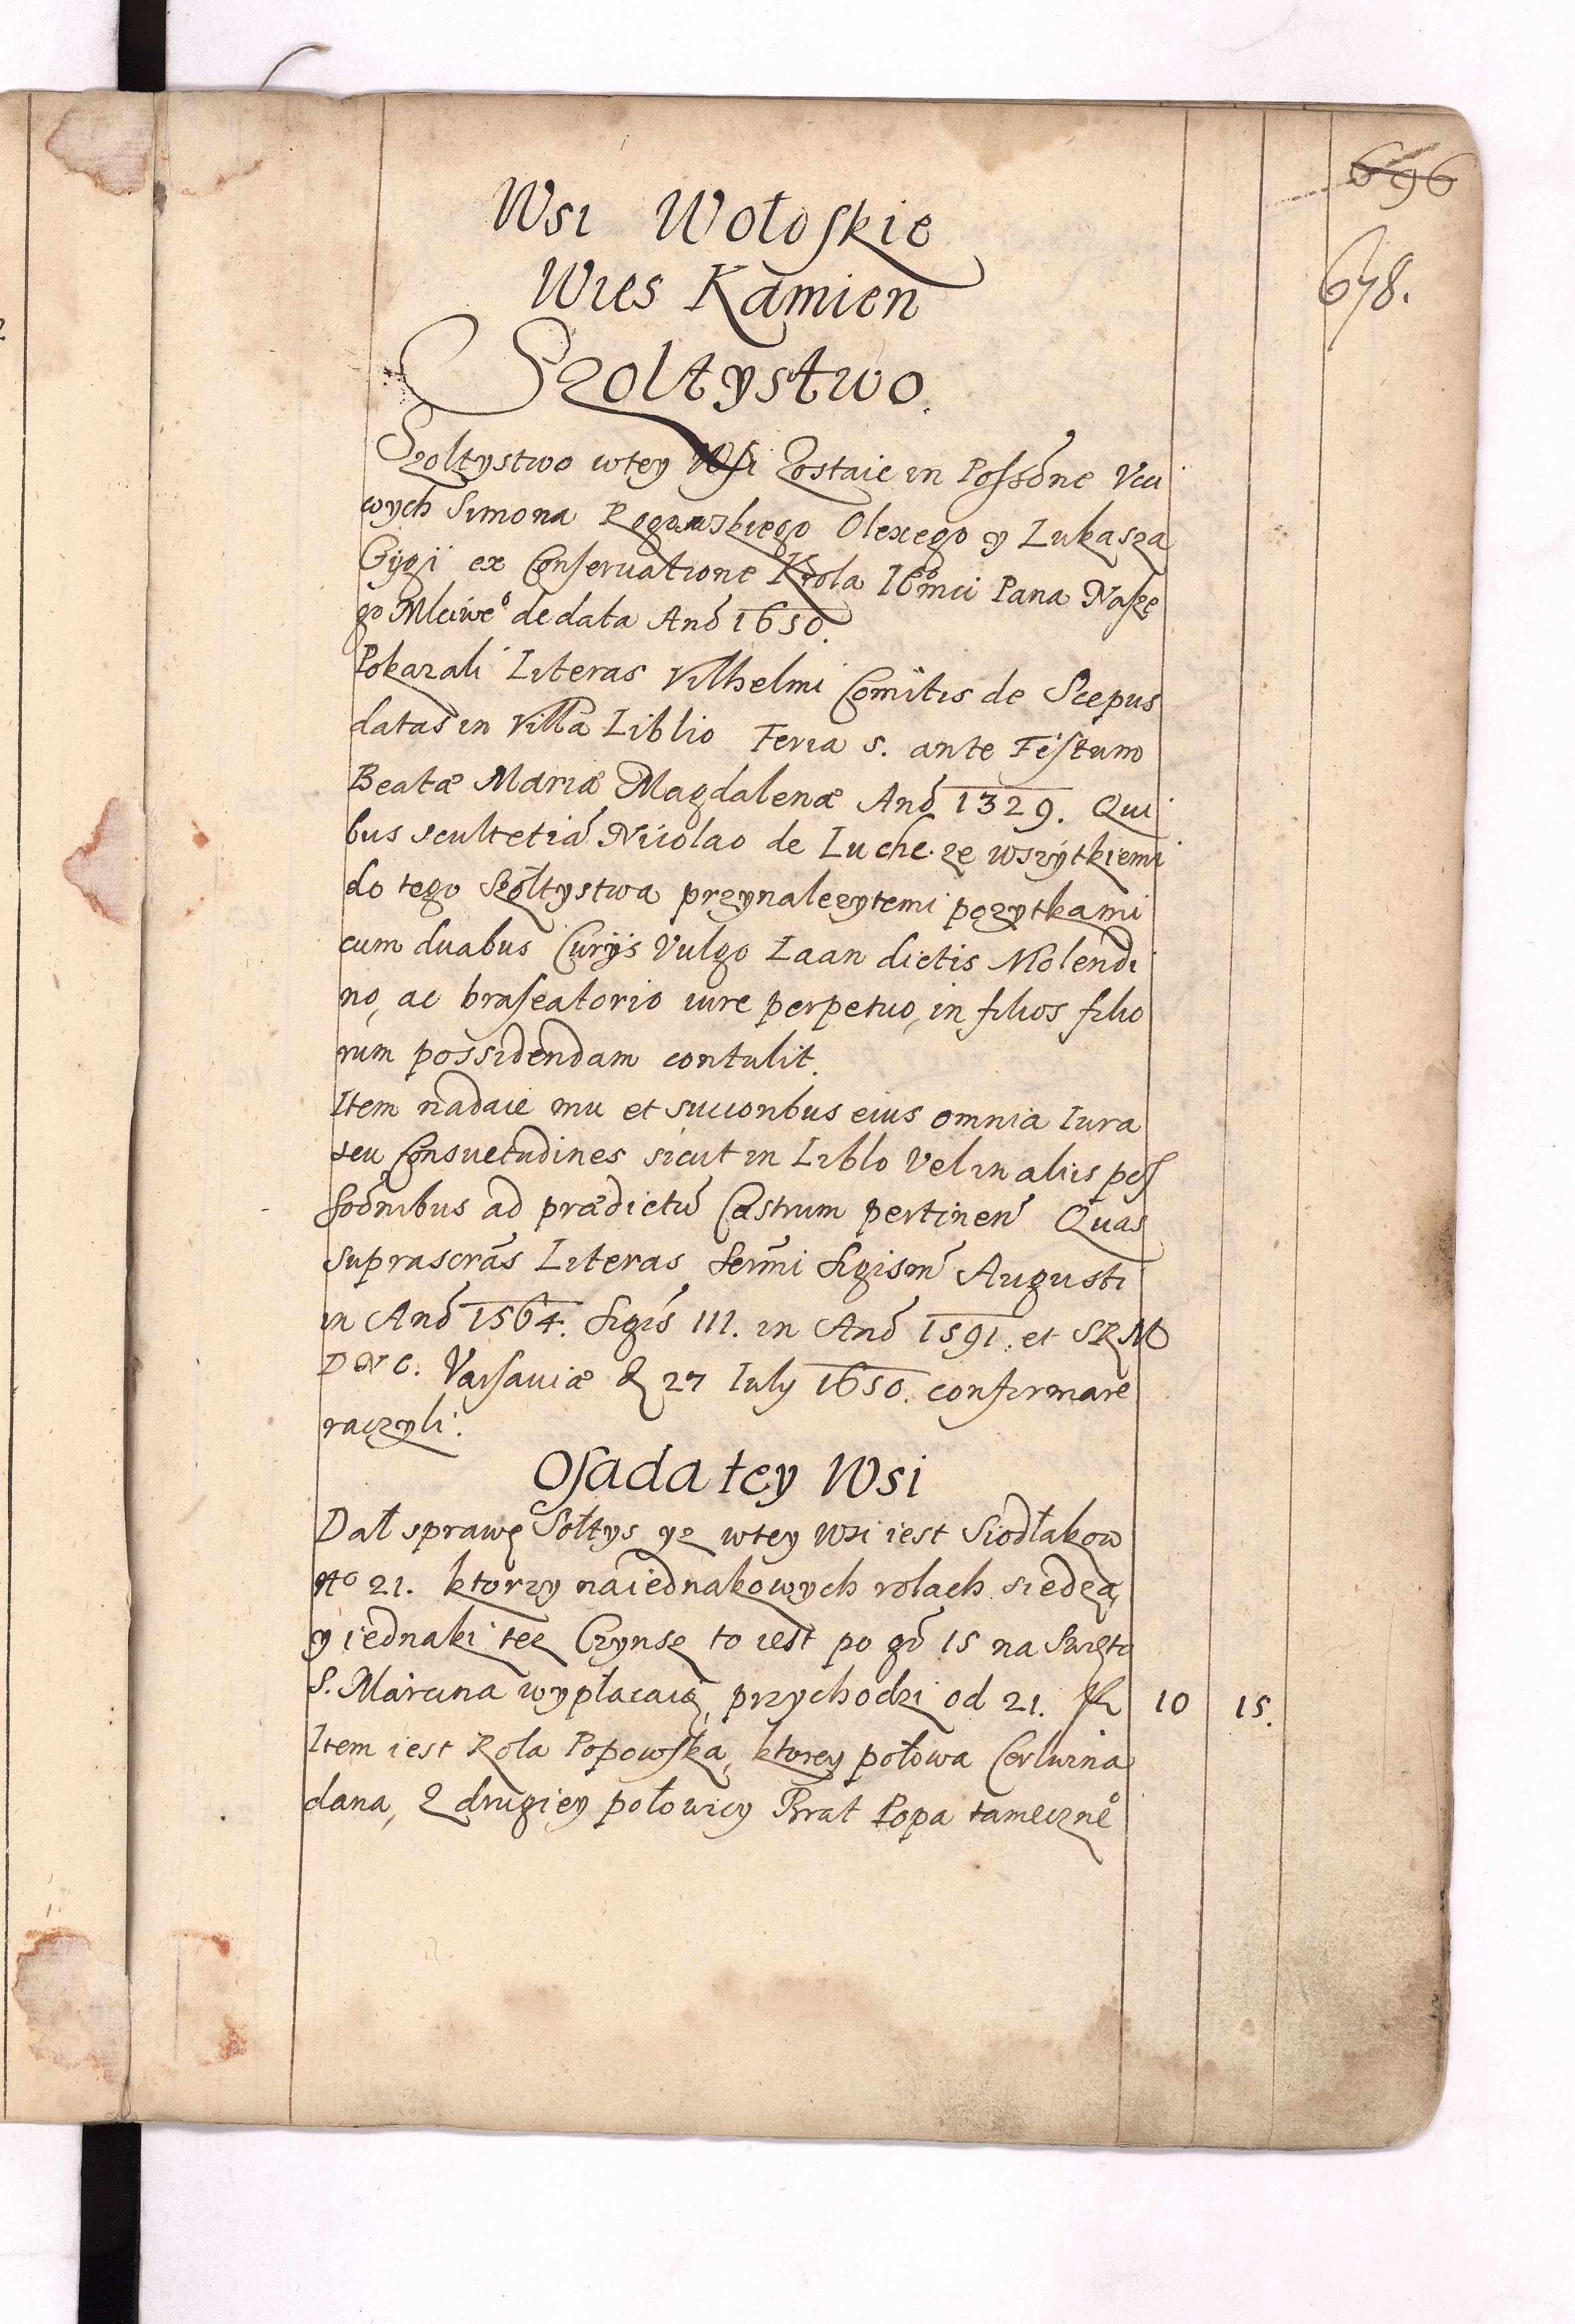 696
678.
Wsi Wołoskie
Wies Kamien
Szoltystwo.
Szoltystwo wtey Wsi Zostaie in Possõne Vcci
wych Simona Rogowskiego Olexego y Lukasza
ex Conseruatione Krola Pana Nasze
go de data Anõ 1650.
Pokazali Literas Vilhelmi Comitis de Scepus
datas in Villa Liblio Feria 5. ante Festum
Beatæ Mariæ Magdalenæ Anõ 1329. Qui
bus scultetiã Nicolao de Luche ze wszytkiemi
do tego Szołtystwa przynalezytemi pozytkami
cum duabus Curijs Vulgo Laan dictis Molendi
no, ac braseatorio iure perpetuo, in filios filio
rum possidendam contulit.
Item nadaie mu et succonbus eius omnia Iura
seu Consuetudines sicut in Liblo Vel in aliis pos
soõnibus ad prædictũ Castrum pertinen Quas
suprascrãs Literas Sermi Sigism Augusti
in Anõ 1564. Sigis III. in Anõ 1591. et SRM
DNC. Varsauiæ D 27 Iuly 1650. confirmare
raczyli.
Osada tey Wsi
Dał sprawę Sołtys yz wtey wsi iest Siodłakow
No 21. ktorzy naiednakowych rolach siedzą
y iednaki tez Czynsz to iest po gõ 15 na Swięto
S. Marcina wypłacaią, przychodzi od 21. fl 10 15.
Item iest Rola Popowska, ktorey połowa Cerkwi na
dana, Z drugiey połowicy Brat Popa tameczne°